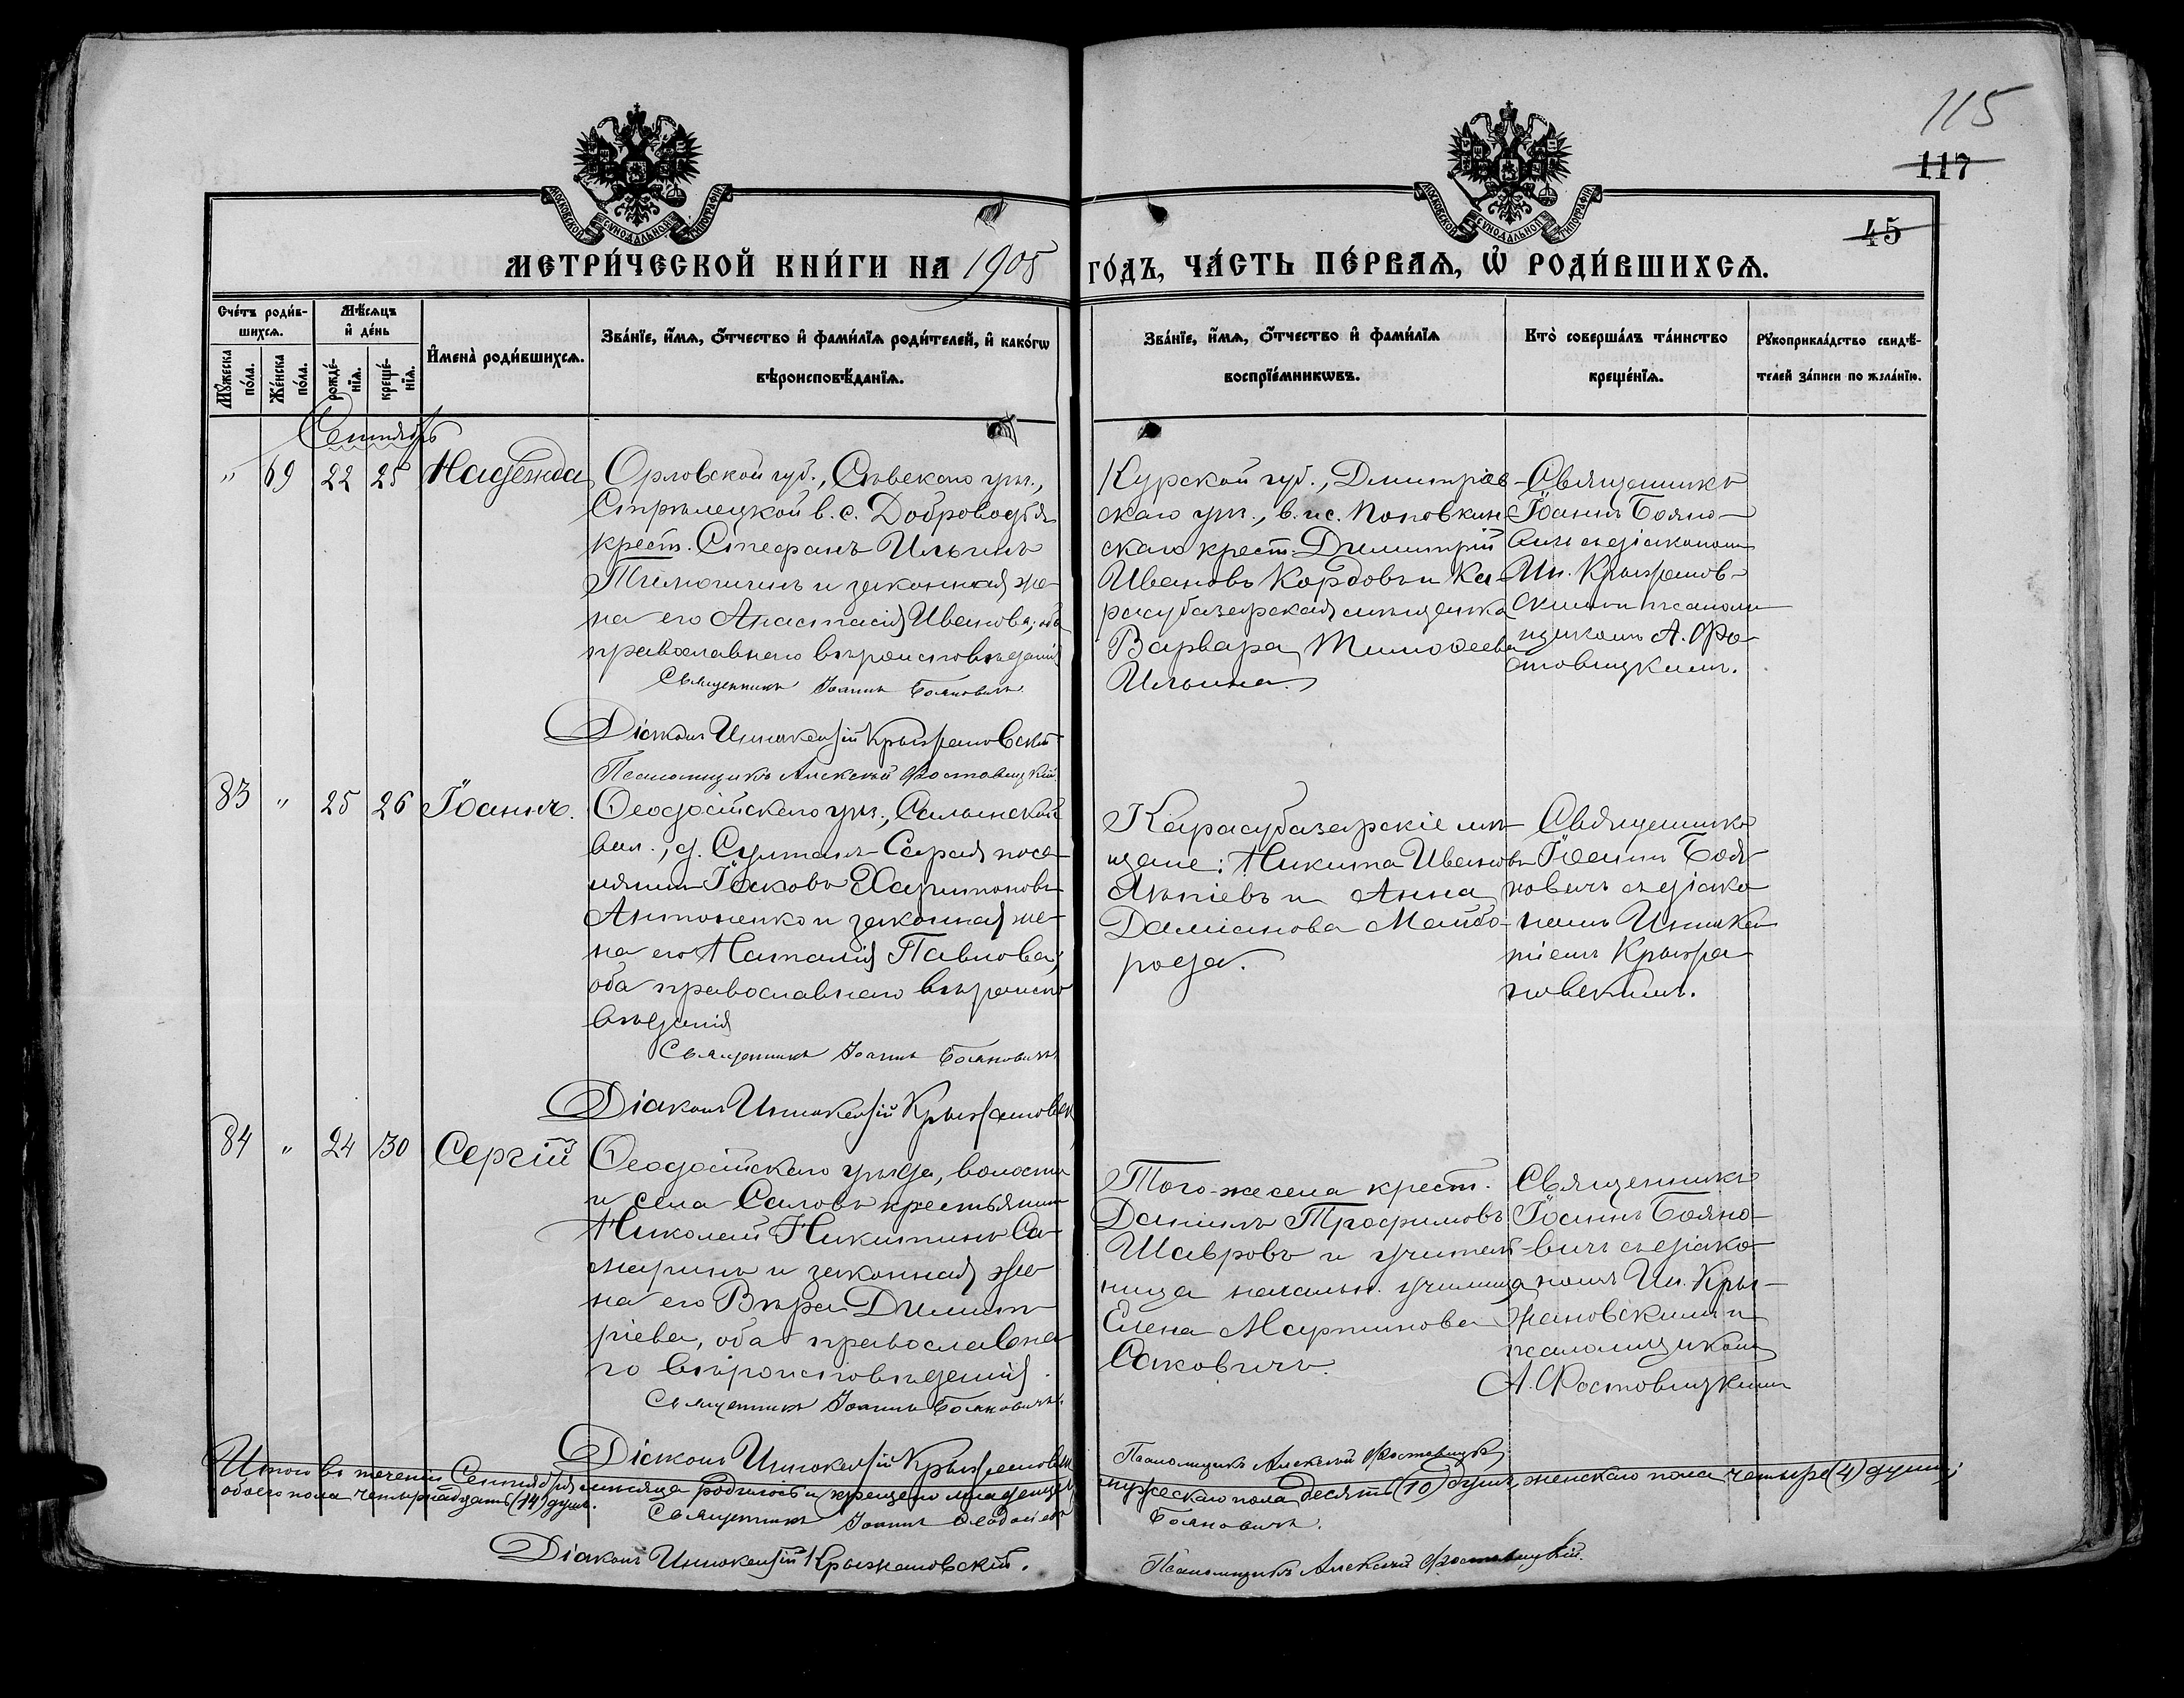 115
117
45
МОСКОВСКОЙ СѴНОДАЛЬНОЙ ТИПОГРАФІИ
МОСКОВСКОЙ СѴНОДАЛЬНОЙ ТИПОГРАФІИ
МЕТРИ́ЧЕСКОЙ КНИ́ГИ НА 1905 ГО́ДЪ, ЧА́СТЬ ПЕ́РВАѦ, Ѡ҆ РОДИ́ВШИХСѦ.
Сче́тъ роди́в-
шихсѧ.
Мꙋ́жеска по́ла.
Же́нска по́ла.
Мѣ́сѧцъ
и҆ де́нь
рожде́-
нїѧ.
креще́-
нїѧ.
И҆мена̀ роди́вшихсѧ.
Зва́нїе, и҆́мѧ, ѻ҆́тчество и҆ фами́лїѧ роди́телей, и҆ како́гѡ
вѣроисповѣ́данїѧ.
Зва́нїе, и҆́мѧ, ѻ҆́тчество и҆ фами́лїѧ
воспрїе́мникѡвъ.
Кто̀ соверша́лъ та́инство
креще́нїѧ.
Рꙋкоприкла́дство свидѣ́-
телей за́писи по жела́нїю.
Сентябрь
" 69 22 25 Надежда
Орловской губ., Сѣвскаго уѣз.,
Стрѣлецкой в. с. Доброводья
крест. Стефанъ Ильинъ
и законная же-
на его Анастасія Иванова; оба
православнаго вѣроисповѣданія
Священникъ Іоаннъ Бояновичъ
Діаконъ Иннокентій Крыжановскій
Псаломщикъ Алексѣй Фостовицкій.
Курской губ., Димитріев-
скаго уѣз., в. и с. Поповкин-
скаго крест. Димитрій
Ивановъ Кордовъ и Ка-
расубазарская мѣщанка
Варвара Тимоѳеева
Ильина.
Священникъ
Іоаннъ Бояно-
вичъ съ діакономъ
Ин. Крыжанов-
скимъ и псалом-
щикомъ А. Фо-
стовицкимъ.
83 " 25 26 Іоаннъ.
Ѳеодосійскаго уѣз., Салынской
вол., д. Султанъ-Сарая посе-
лянинъ Іаковъ Харитоновъ
Антоненко и законная же-
на его Наталія Павлова;
оба православнаго вѣроиспо
вѣданія
Священникъ Іоаннъ Бояновичъ
Діаконъ Иннокентій Крыжановск
Карасубазарскіе мѣ-
щане: Никита Ивановъ
и Анна
Даміанова Майбо-
рода.
Священникъ
Іоаннъ Боя-
новичъ съ діако
номъ Иннокен
тіемъ Крыжа
новскимъ.
84 " 24 30 Сергій
Ѳеодосійскаго уѣзда, волости
и села Саловъ крестьянинъ
Николай Никитинъ Са-
маринъ и законная же
на его Вѣра Димит
ріева, оба православна
го вѣроисповѣданія.
Священникъ Іоаннъ Бояновичъ.
Діаконъ Иннокентій Крыжановск
Того-же села крест.
Даніилъ Трофимовъ
Шавровъ и учитель-
ница начальн. училища
Елена Мартинова
Саковичъ.
Псаломщикъ Алексѣй Фостовицкій
Священникъ
Іоаннъ Бояно-
вичъ съ діако
номъ Ин. Кры-
жановскимъ и
псаломщикомъ
А. Фостовицкимъ
Итого въ теченіи Сентября мѣсяца родилось и крещено младенцевъ мужескаго пола десять (10) душъ, женскаго пола четыре (4) души;
обоего пола четырнадцать (14) душъ.
Священникъ Іоаннъ Ѳеодосіевъ Бояновичъ.
Діаконъ Иннокентій Крыжановскій.
Псаломщикъ Алексѣй Фостовицкій.